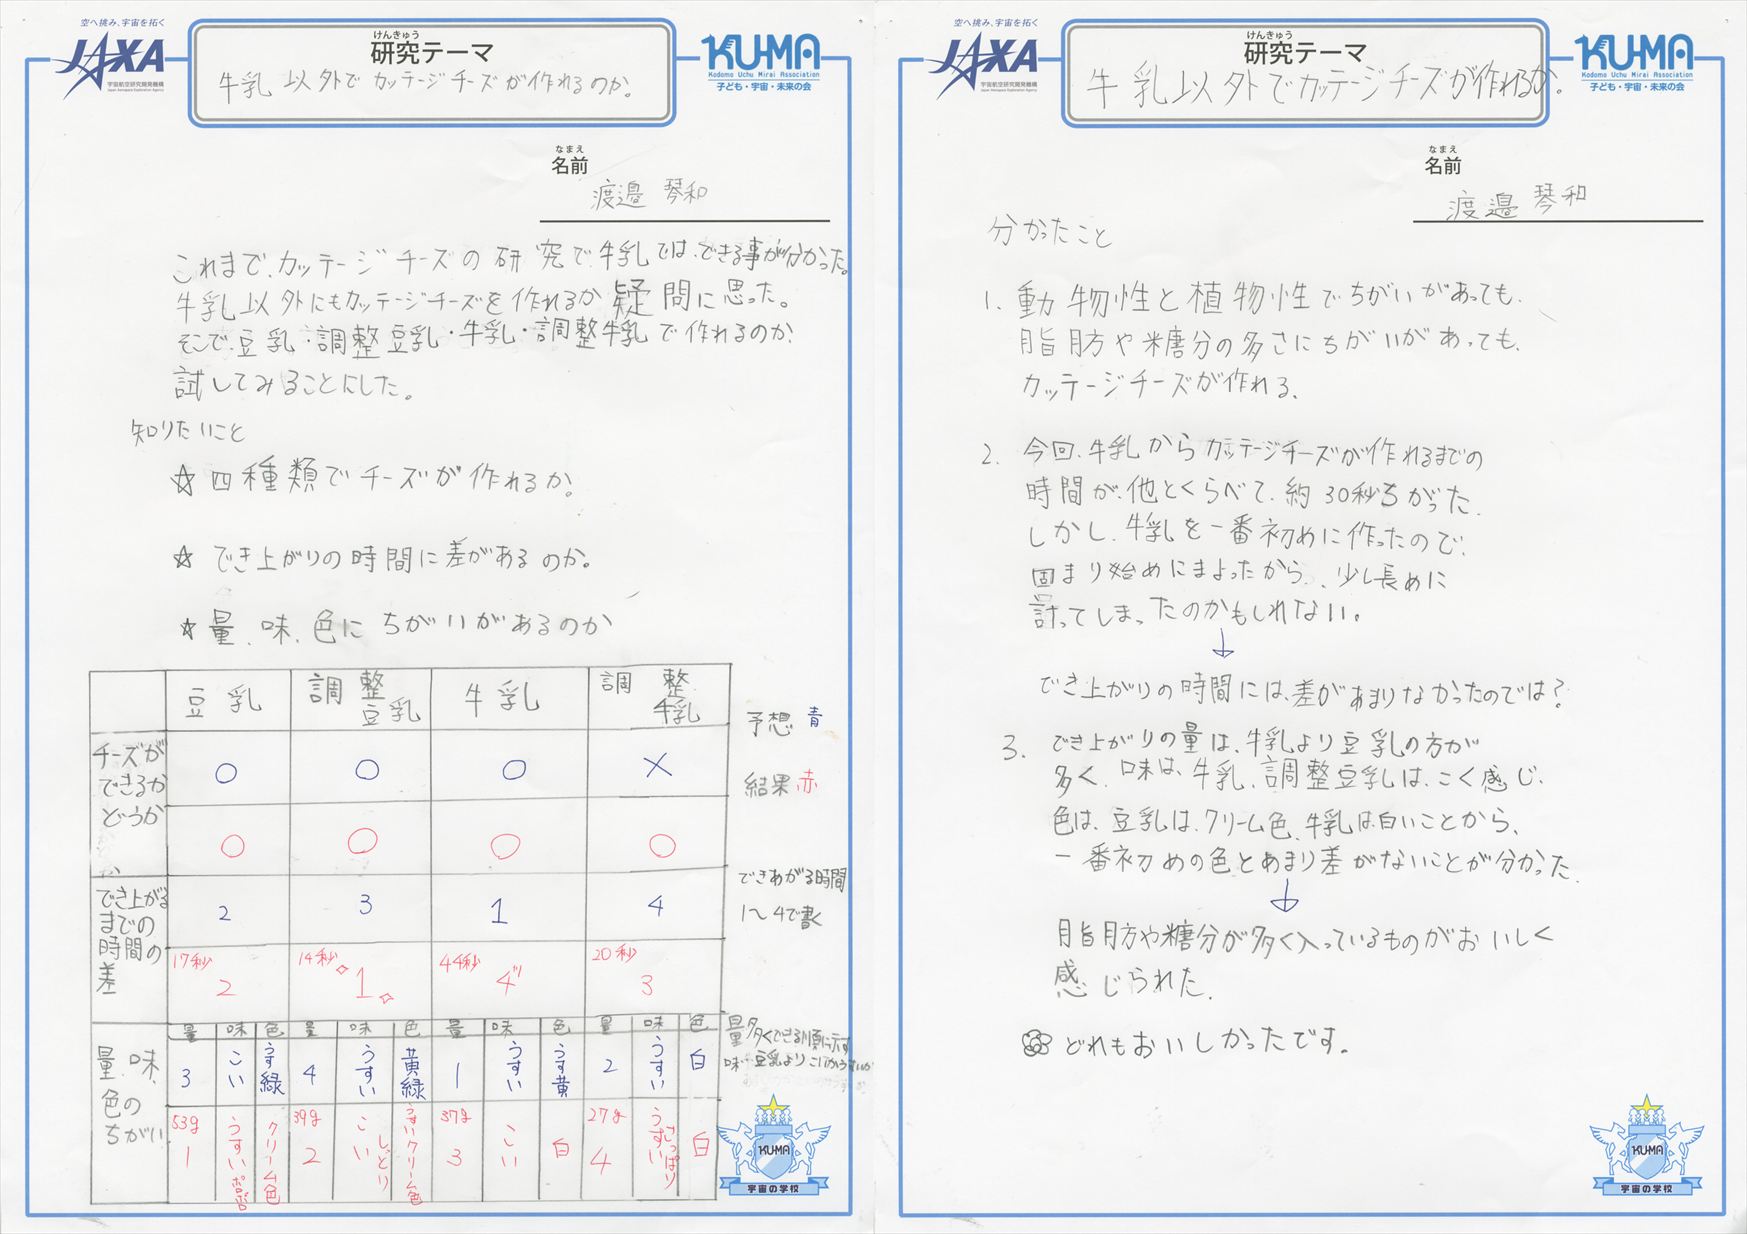 空へ挑み、宇宙を拓く
JAXA
宇宙航空研究開発機構
Japan Aerospace Exploration Agency
けんきゅう
研究テーマ
牛乳以外でカッテージチーズが作れるのか。
KU-MA
Kodomo Uchu Mirai Association
子ども・宇宙・未来の会
なまえ
名前
渡邉 琴和
これまで、カッテージチーズの研究で、牛乳では、できる事が分かった。
牛乳以外にもカッテージチーズを作れるか疑問に思った。
そこで、豆乳・調整豆乳・牛乳・調整牛乳で作れるのか、
試してみることにした。
知りたいこと
☆ 四種類でチーズが作れるか。
☆ でき上がりの時間に差があるのか。
☆ 量、味、色にちがいがあるのか
豆乳 調整豆乳 牛乳 調整牛乳
予想 青
結果 赤
チーズができるかどうか
○ ○ ○ ×
○ ○ ○ ○
できあがる時間
1〜4で書く
でき上がるまでの時間の差
2 3 1 4
17秒 14秒 44秒 20秒
2 1 4 3
量、味、色のちがい
量 味 色 量 味 色 量 味 色 量 味 色
量 多くできる順に示す
味 豆乳よりこいかうすいか
3 こい うす緑 4 うすい 黄緑 1 うすい うす黄 2 うすい 白
53g 1 うすい ボロボロ クリーム色 39g 2 こい しっとり うすいクリーム色 37g 3 こい 白 27g 4 うすい さっぱり 白
KU-MA
宇宙の学校
空へ挑み、宇宙を拓く
JAXA
宇宙航空研究開発機構
Japan Aerospace Exploration Agency
けんきゅう
研究テーマ
牛乳以外でカッテージチーズが作れるか。
KU-MA
Kodomo Uchu Mirai Association
子ども・宇宙・未来の会
なまえ
名前
渡邉 琴和
分かったこと
1. 動物性と植物性でちがいがあっても、
脂肪や糖分の多さにちがいがあっても、
カッテージチーズが作れる。
2. 今回、牛乳からカッテージチーズが作れるまでの
時間が、他とくらべて、約30秒ちがった。
しかし、牛乳を一番初めに作ったので、
固まり始めにまよったから、少し長めに
計ってしまったのかもしれない。
↓
でき上がりの時間には、差があまりなかったのでは?
3. でき上がりの量は、牛乳より豆乳の方が
多く、味は、牛乳、調整豆乳は、こく感じ、
色は、豆乳は、クリーム色、牛乳は白いことから、
一番初めの色とあまり差がないことが分かった。
↓
脂肪や糖分が多く入っているものがおいしく
感じられた。
どれもおいしかったです。
KU-MA
宇宙の学校